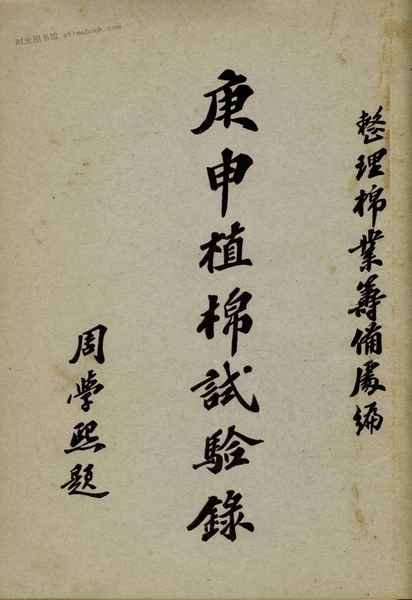 整理棉業籌備處編
庚申植棉試驗錄
周學熙題
时光图书馆